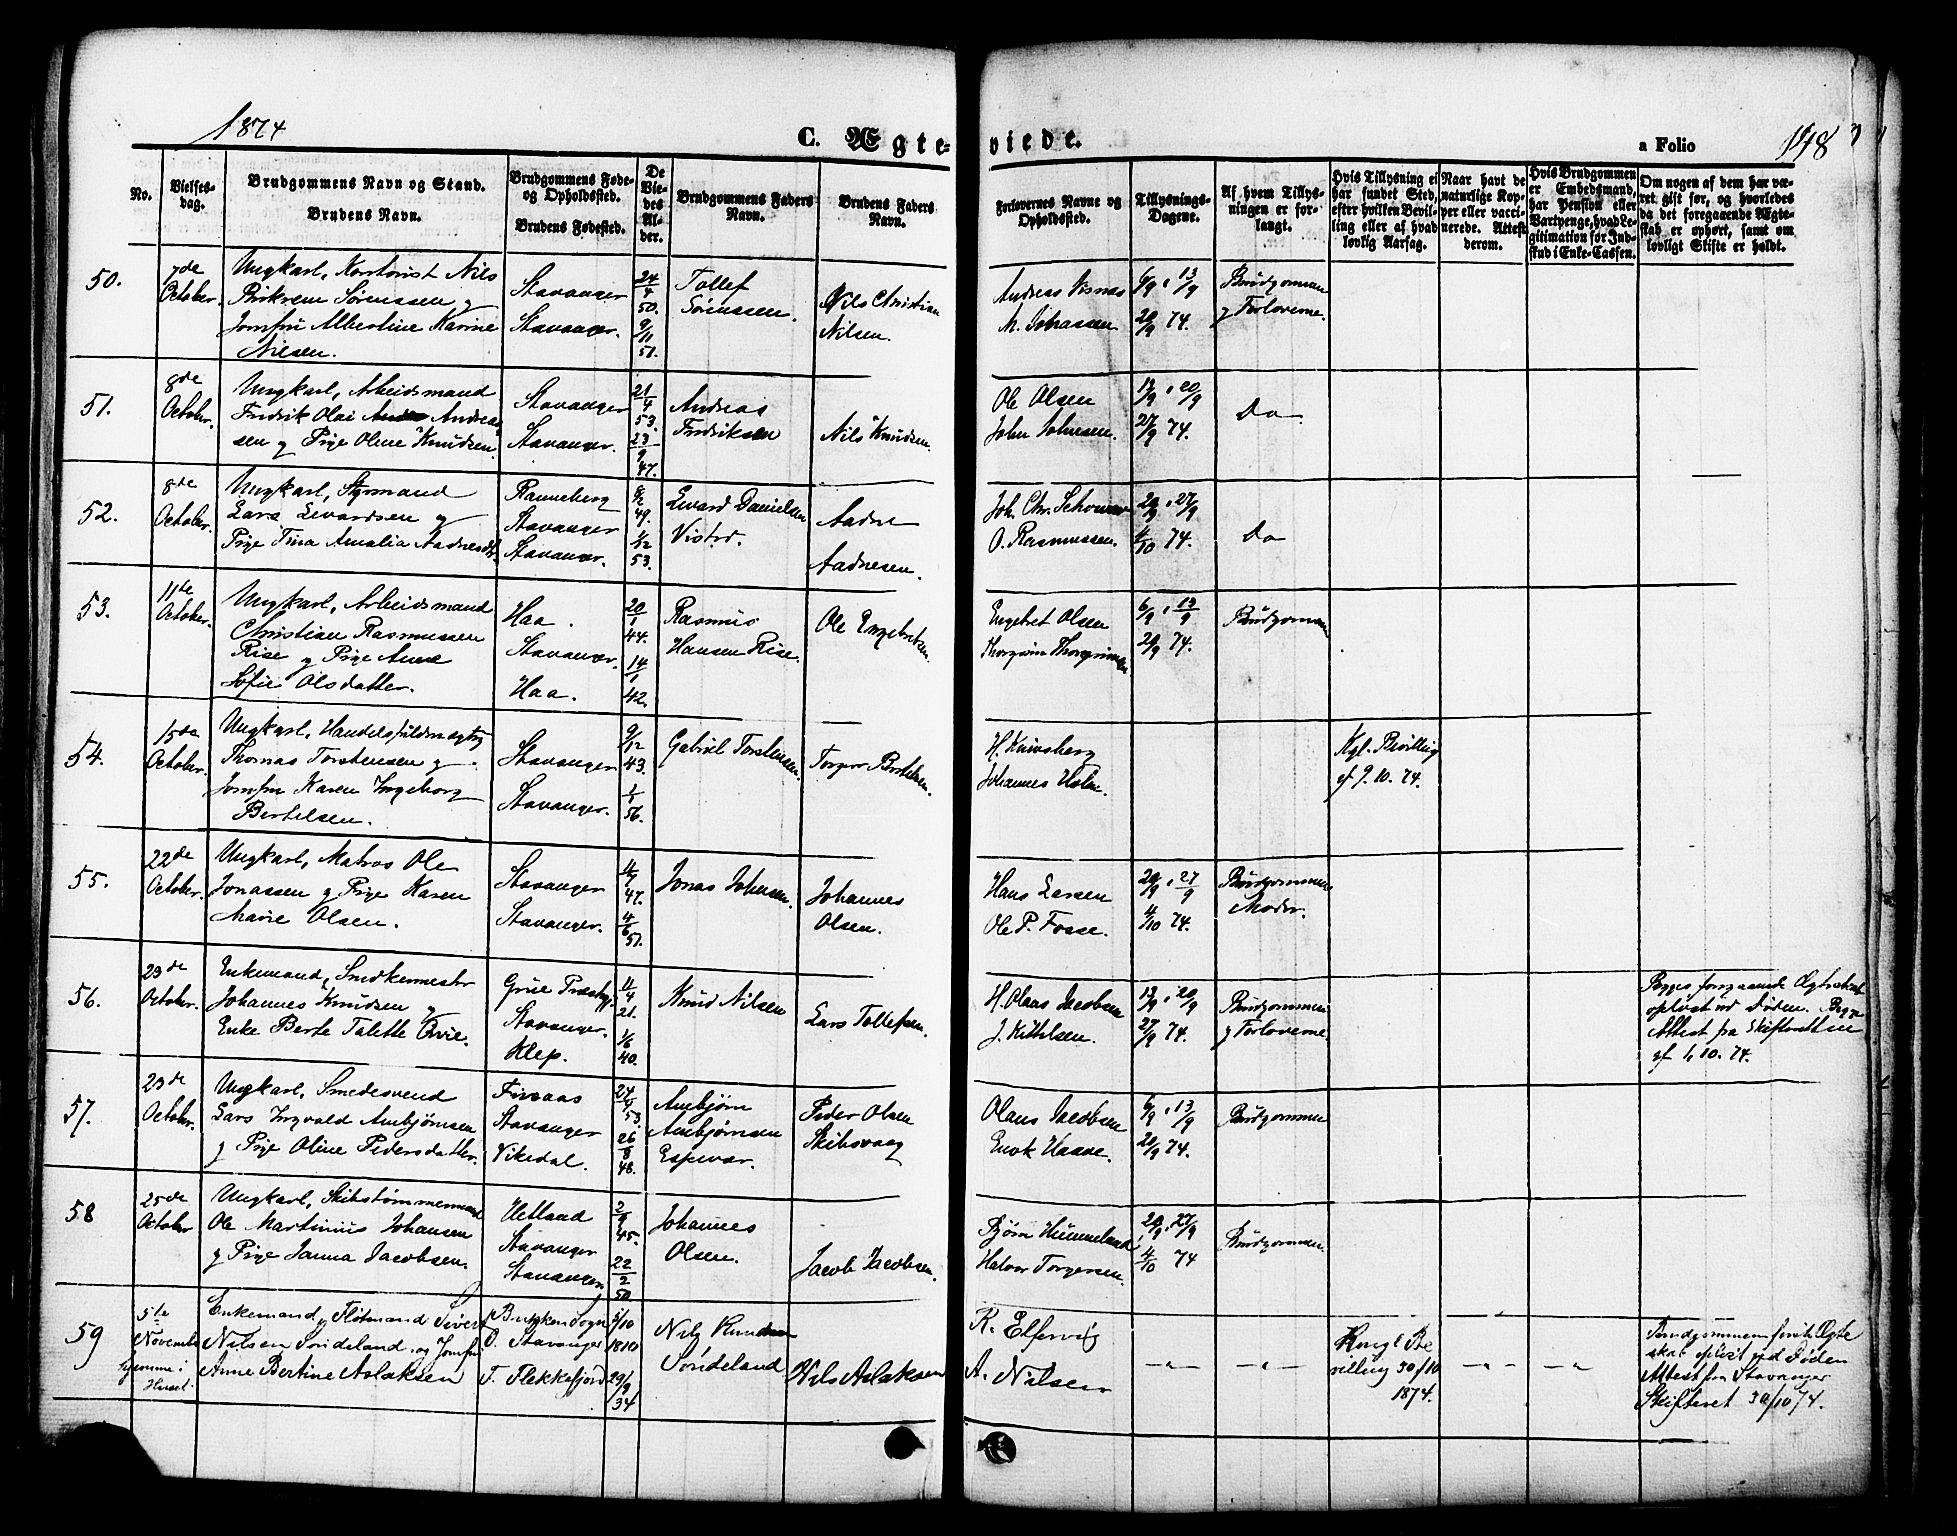 1874
C. Ægte-
viede.
a Folio
148
No.
Vielses-
dag.
Brudgommens Navn og Stand.
Brudens Navn.
Brudgommens Føde-
og Opholdssted.
Brudens Fødested.
De
Vie-
des
Al-
der.
Brudgommens Faders
Navn.
Brudens Faders
Navn.
Forlovernes Navne og
Opholdssted.
Tillysnings-
Dagene.
Af hvem Tillys-
ningen er for-
langt.
Hvis Tillysning ei
har fundet Sted,
efter hvilken Bevil-
ling eller af hvad
lovlig Aarsag.
Naar havt de
naturlige Kop-
per eller vacci-
nerede. Attest
derom.
Hvis Brudgommen
er Embedsmand,
har Pension eller
Vartpenge, hvad Le-
gitimation for Ind-
skud i Enke-Cassen.
Om nogen af dem har væ-
ret gift før, og hvorledes
da det foregaaende Ægte-
skab er ophørt, samt om
lovligt Skifte er holdt.
50.
7de
October.
Ungkarl, Nils
Birkrem Sørenssen og
Jomfru Albertine Karine
Nilsen.
Stavanger
Stavanger.
24/4
50.
9/11
51.
Tollef
Sørenssen.
Nils Christian
Nilsen.
Andreas Visnes
M. Johassen
6/9, 13/9
20/9 74.
Brudgommen
og Forloverne.
51.
8de
October.
Ungkarl, Arbeidsmand
Fredrik Olai Andreas
sen og Pige Oline Knudsen.
Stavanger
Stavanger.
21/4
53.
23/9
47.
Andreas
Fredriksen
Nils Knudsen.
Ole Olsen
John Johnsen.
13/9, 20/9
27/9 74.
Do
52.
8de
October.
Ungkarl, Styrmand
Lars Evardsen og
Pige Tina Amalia Aadnesdtr.
Ranneberg
Stavanger
Stavanger.
8/2
49.
1/12
53.
Evard Danielsen
Vistad.
Aadne
Aadnesen.
Joh. Chr.
O. Rasmussen.
20/9, 27/9
4/10 74.
Do
53.
11te
October.
Ungkarl, Arbeidsmand
Christian Rasmussen
Rise og Pige Anne
Sofie Olsdatter.
Haa.
Stavanger.
Haa.
20/1
44.
14/1
42.
Rasmus
Hansen Rise.
Ole Engebretsen.
Engebret Olsen
Thorgrim Thorgrimsen
6/9, 13/9
20/9 74.
Brudgommen
54.
15de
October.
Ungkarl, Handelsfuldmægtig
Thomas Torstensen og
Jomfru Karen Ingeborg
Bertelsen.
Stavanger
Stavanger.
9/12
43.
1/1
56.
Gabriel Torstensen.
Torger Bertelsen.
H. Knivsberg
Johannes Holm.
Kgl. Bevilling
af 9.10.74.
55.
22de
October.
Ungkarl, Matros Ole
Jonassen og Pige Karen
Marie Olsen.
Stavanger
Stavanger.
47.
4/6
51.
Jonas Johnsen.
Johannes
Olsen.
Hans Larsen
Ole P. Fosse.
20/9, 27/9
4/10 74.
Brudgommens
Moder.
56.
23de
October.
Enkemand, Snedkermester
Johannes Knudsen og
Enke Berte Talette
Grue Præstegj.
Stavanger.
Klep.
11/4
21.
1/6
40.
Knud Nilsen
Lars Tollefsen.
H. Olaas Jacobsen
J. Kittelsen.
13/9, 20/9
27/9 74.
Brudgommen
og Forloverne
Begges forrgaaende Ægteskab
opløst ved Døden. Begge
Attest fra Skifteretten
af 1.10.74.
57.
23de
October.
Ungkarl, Smedesvend
Lars Ingvald Anbjørnsen
og Pige Oline Pedersdatter.
Firsaas
Stavanger
Vikedal.
53.
26/8
48.
Anbjørn
Anbjørnsen
Espevær.
Peder Olsen
Skibsvaag
Olaus Jacobsen
Enok Haave.
6/9, 13/9
20/9 74.
Brudgommen
58
25de
October
Ungkarl, Skibstømmermand
Ole Martinius Johansen
og Pige Janna Jacobsen.
Hetland
Stavanger
Stavanger
2/9
45.
22/2
50
Johannes
Olsen.
Jacob Jacobsen.
Bjørn Hummeland
Halvor Torgersen.
20/9, 27/9
4/10 74
Brudgommen.
59
5te
November
hjemme i
Huset.
Enkemand, Flotmand Sivert
Nilsen Søndeland, og Jomfru
Anne Bertine Aslaksen
f. Bukken Sogn
O. Stavanger
F. Flekkefjord
5/10
1810
29/9
34
Nils Knudsen
Søndeland
Nils Aslaksen
R. Elfervig
A. Nilsen
—„—
—„—
Kongl Be
villing 30/10
1874.
—„—
—„—
Brudgommens første Ægte
skab opløst ved Døden
Attest fra Stavanger
Skifteret 30/10 74.